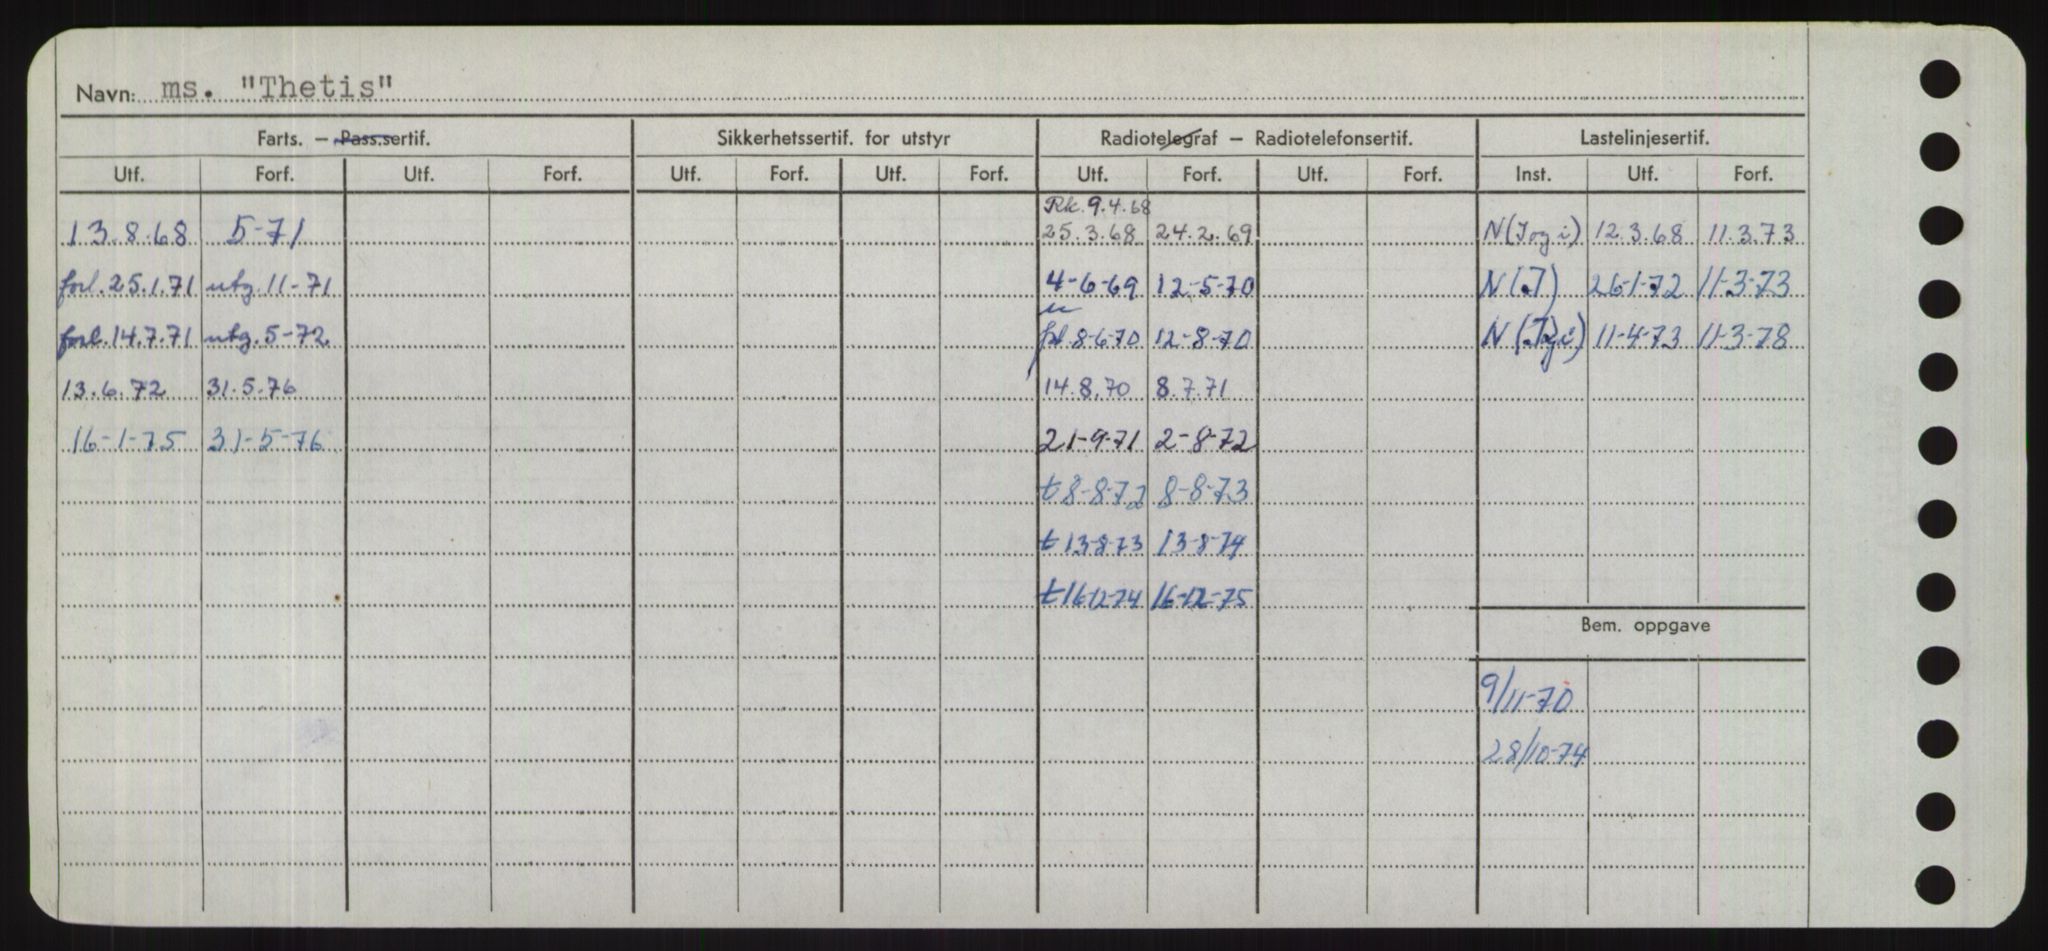 Navn: ms. "Thetis"
Farts. – Pass.sertif. Sikkerhetssertif. for utstyr Radiotelegraf – Radiotelefonsertif. Lastelinjesertif.
Utf. Forf. Utf. Forf. Utf. Forf. Utf. Forf. Utf. Forf. Utf. Forf. Inst. Utf. Forf.
Rk. 9.4.68
13.8.68 5-71 25.3.68 24.2.69 N(I og i) 12.3.68 11.3.73
forl. 25.1.71 utg. 11-71 4-6-69 12-5-70 N(I) 26-1-72 11-3-73
forl. 14.7.71 utg. 5-72 fl. 8-6-70 12-8-70 N(I og i) 11-4-73 11-3-78
13.6.72 31.5.76 14.8.70 8.7.71
16-1-75 31-5-76 21-9-71 2-8-72
t 8-8-72 8-8-73
t 13-8-73 13-8-74
t 16-12-74 16-12-75
Bem. oppgave
9/11-70
28/10-74